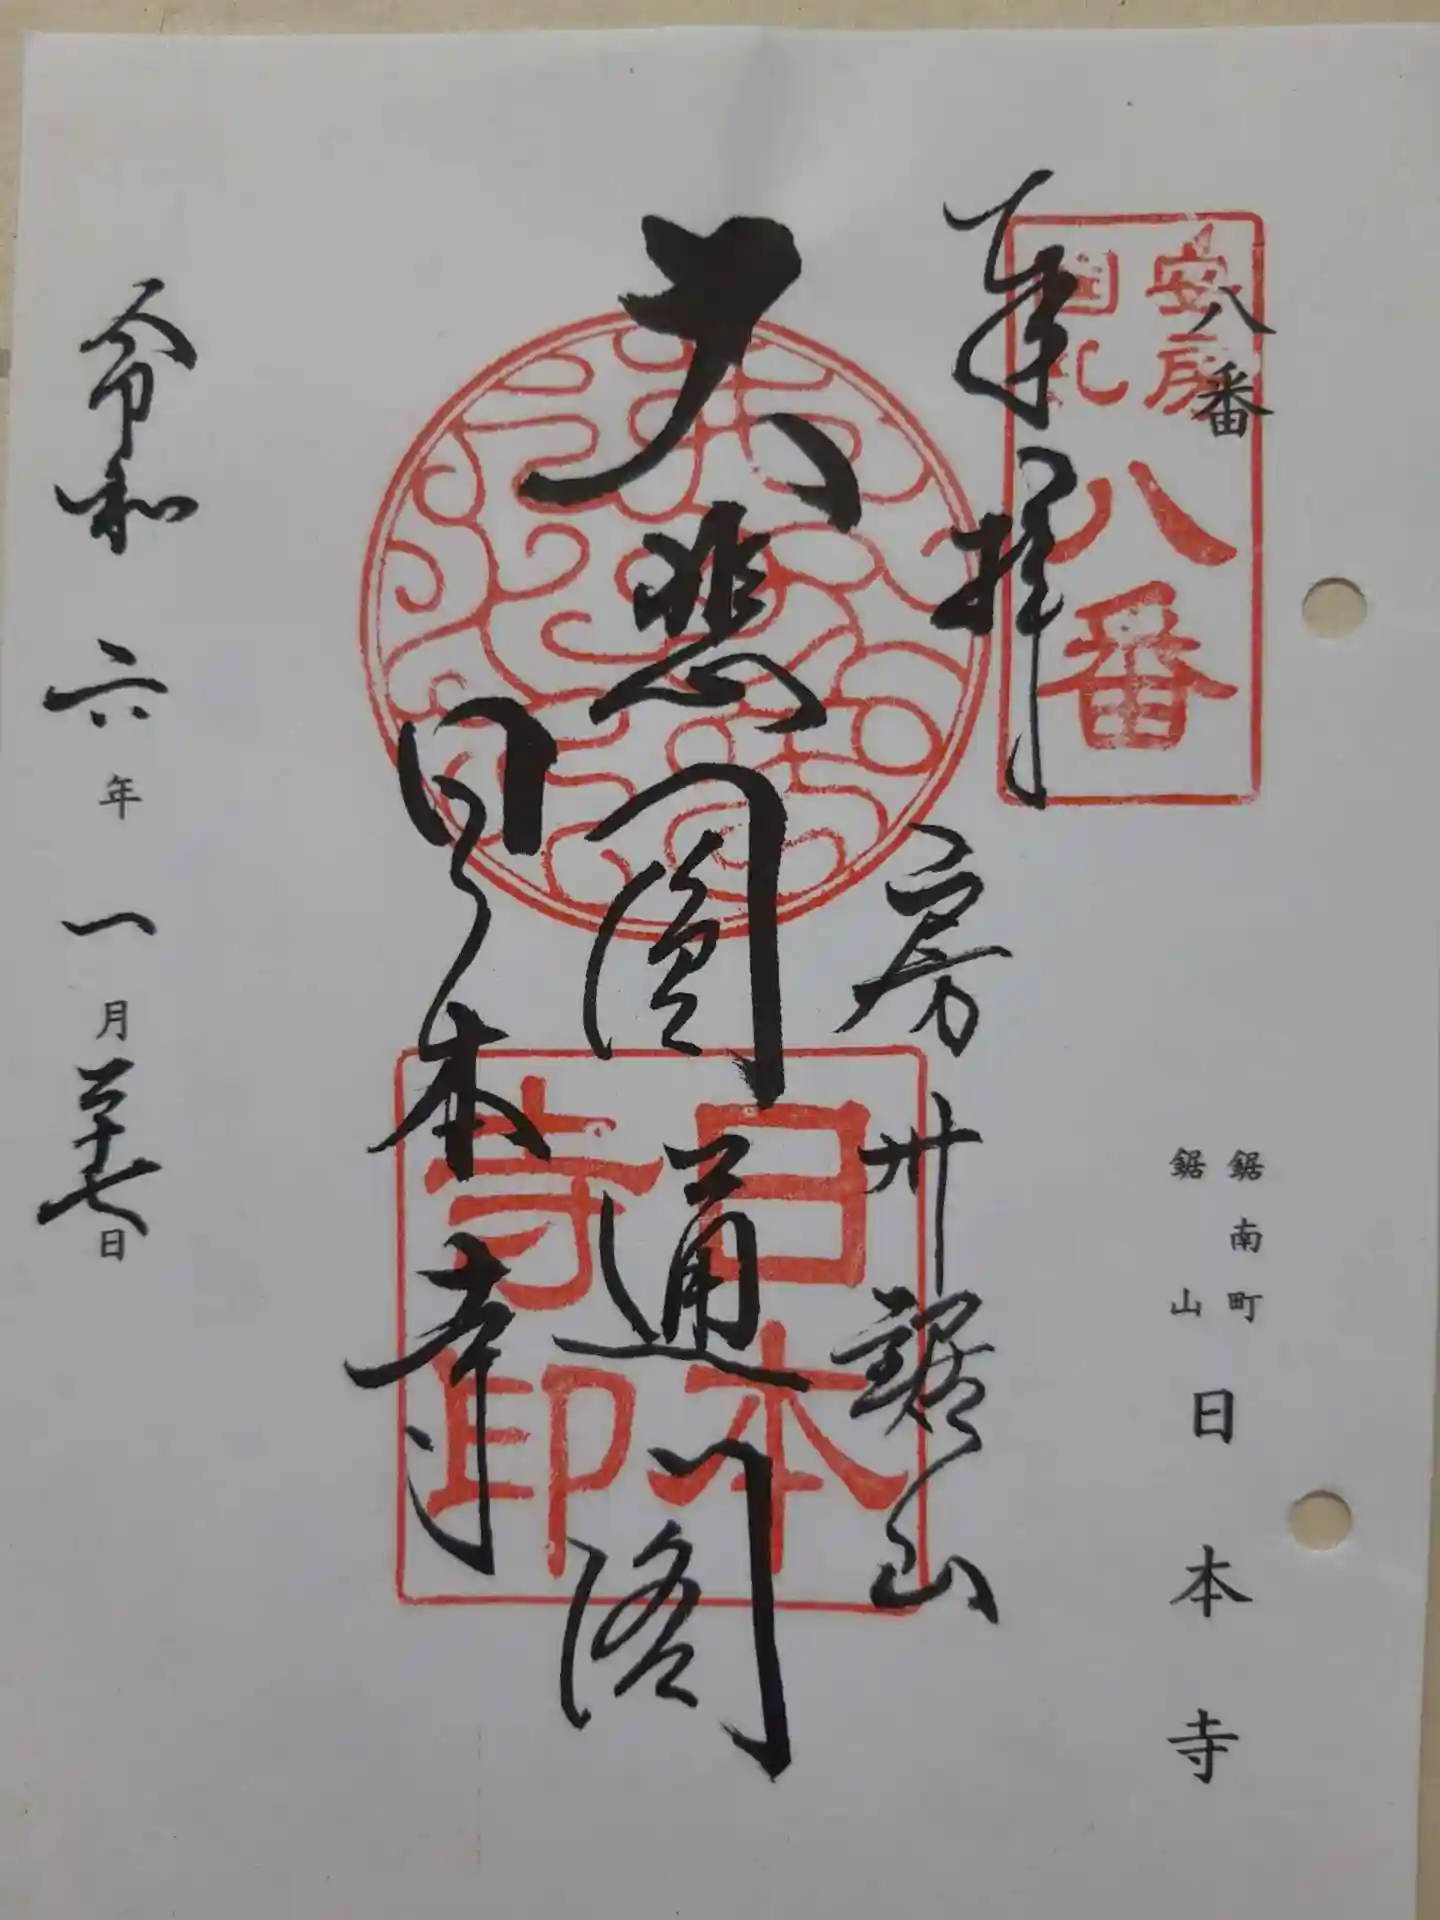 八番
鋸南町
鋸山
日本寺
安房
国札
八番
奉拝
房州鋸山
大悲圓通閣
日本寺
日本
寺印
令和六年一月二十七日